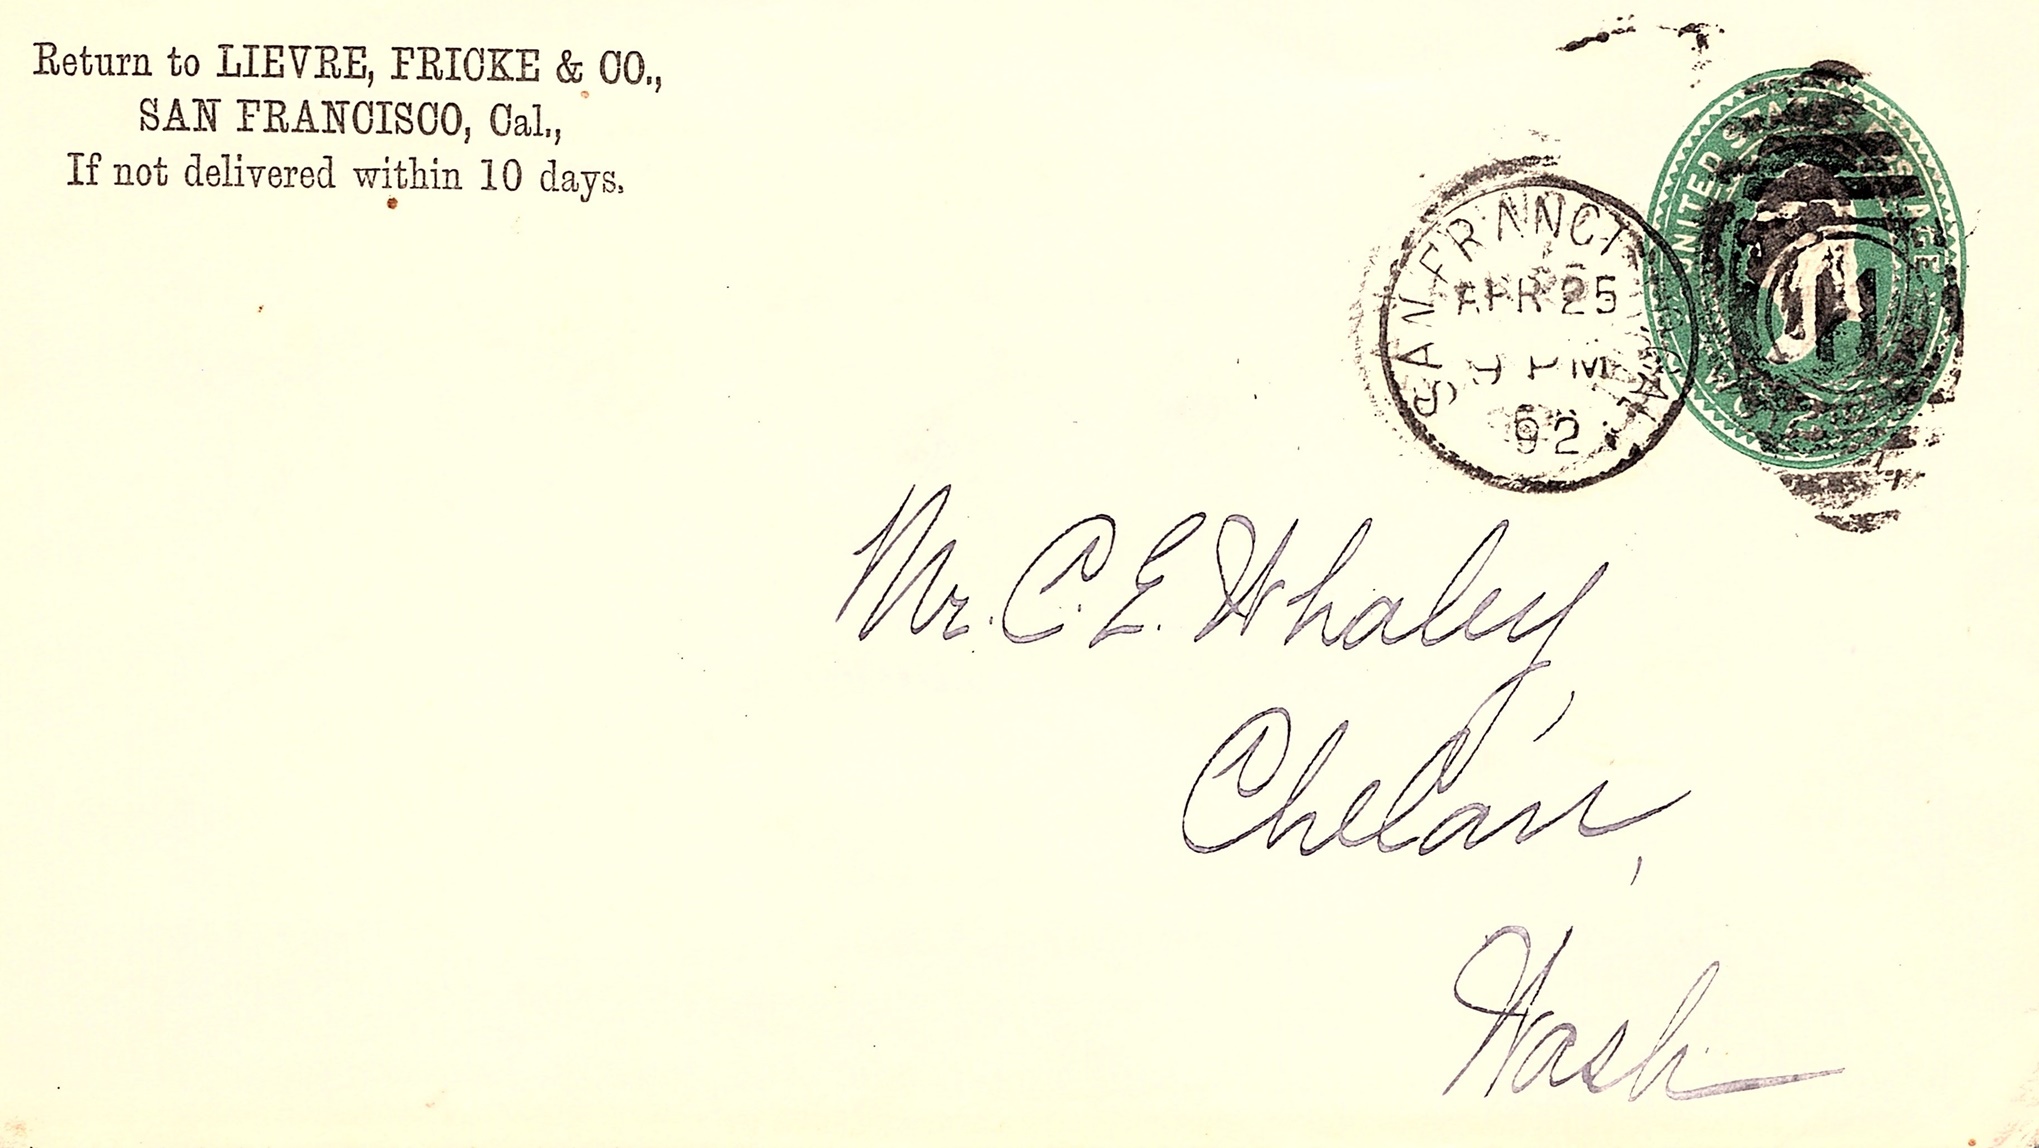 Return to LIEVRE, FRICKE & CO.,
SAN FRANCISCO, Cal.,
If not delivered within 10 days.
UNITED STATES POSTAGE
TWO
SAN FRANCI
CAL
APR 25
PM
92
Mr. C. E. Whaley,
Chelan,
Wash